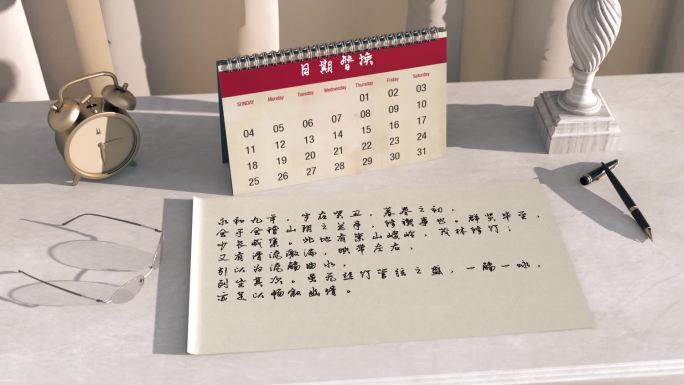 日期替换
SUNDAY Monday Tuesday Wednesday Thursday Friday Saturday
01 02 03
04 05 06 07 08 09 10
11 12 13 14 15 16 17
18 19 20 21 22 23 24
25 26 27 28 29 30 31
永和九年，岁在癸丑，暮春之初，
会于会稽山阴之兰亭，修禊事也。群贤毕至，
少长咸集。此地有崇山峻岭，茂林修竹；
又有清流激湍，映带左右，
引以为流觞曲水，
列坐其次。虽无丝竹管弦之盛，一觞一咏，
亦足以畅叙幽情。